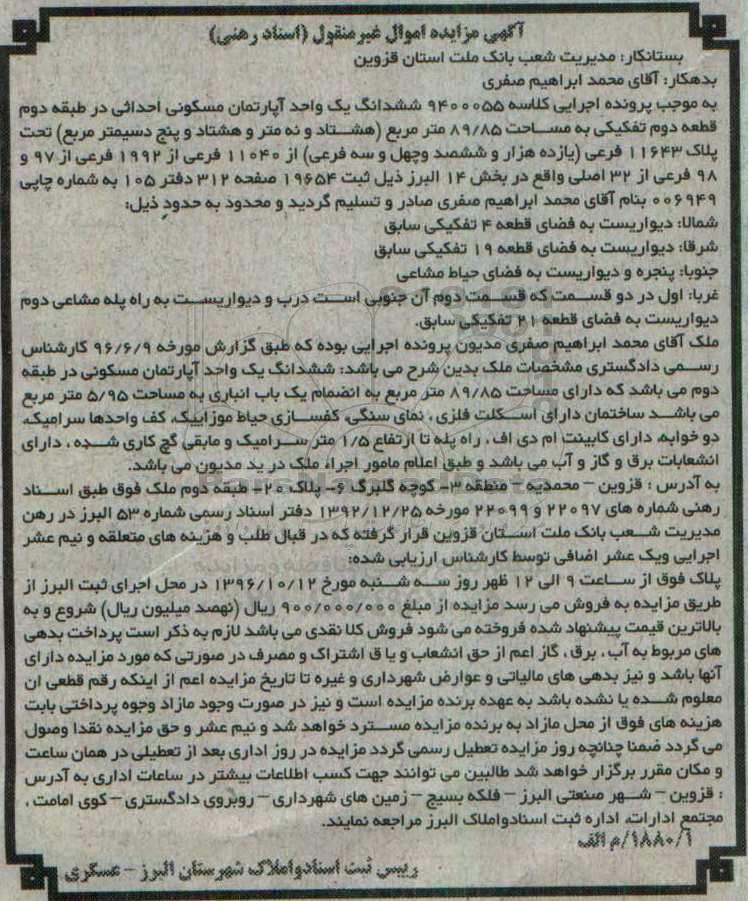 آگهی مزایده اموال غیرمنقول (اسناد رهنی)
بستانکار: مدیریت شعب بانک ملت استان قزوین
بدهکار: آقای محمد ابراهیم صفری
به موجب پرونده اجرایی کلاسه ۹۴۰۰۰۵۵ ششدانگ یک واحد آپارتمان مسکونی احداثی در طبقه دوم
قطعه دوم تفکیکی به مساحت ۸۹/۸۵ متر مربع (هشتاد و نه متر و هشتاد و پنج دسیمتر مربع) تحت
پلاک ۱۱۶۴۳ فرعی (یازده هزار و ششصد وچهل و سه فرعی) از ۱۱۰۴۰ فرعی از ۱۹۹۲ فرعی از ۹۷ و
۹۸ فرعی از ۳۲ اصلی واقع در بخش ۱۴ البرز ذیل ثبت ۱۹۶۵۴ صفحه ۳۱۲ دفتر ۱۰۵ به شماره چاپی
۰۰۶۹۴۹ بنام آقای محمد ابراهیم صفری صادر و تسلیم گردید و محدود به حدود ذیل:
شمالا: دیواریست به فضای قطعه ۴ تفکیکی سابق
شرقا: دیواریست به فضای قطعه ۱۹ تفکیکی سابق
جنوبا: پنجره و دیواریست به فضای حیاط مشاعی
غربا: اول در دو قسمت که قسمت دوم آن جنوبی است درب و دیواریست به راه پله مشاعی دوم
دیواریست به فضای قطعه ۲۱ تفکیکی سابق.
ملک آقای محمد ابراهیم صفری مدیون پرونده اجرایی بوده که طبق گزارش مورخه ۹۶/۶/۹ کارشناس
رسمی دادگستری مشخصات ملک بدین شرح می باشد: ششدانگ یک واحد آپارتمان مسکونی در طبقه
دوم می باشد که دارای مساحت ۸۹/۸۵ متر مربع به انضمام یک باب انباری به مساحت ۵/۹۵ متر مربع
می باشد ساختمان دارای اسکلت فلزی ، نمای سنگی، کفسازی حیاط موزاییک، کف واحدها سرامیک،
دو خوابه، دارای کابینت ام دی اف ، راه پله تا ارتفاع ۱/۵ متر سرامیک و مابقی گچ کاری شده ، دارای
انشعابات برق و گاز و آب می باشد و طبق اعلام مامور اجراء ملک در ید مدیون می باشد.
به آدرس : قزوین – محمدیه – منطقه ۳– کوچه گلبرگ ۶– پلاک ۲۰– طبقه دوم ملک فوق طبق اسناد
رهنی شماره های ۲۲۰۹۷ و ۲۲۰۹۹ مورخه ۱۳۹۲/۱۲/۲۵ دفتر اسناد رسمی شماره ۵۳ البرز در رهن
مدیریت شعب بانک ملت استان قزوین قرار گرفته که در قبال طلب و هزینه های متعلقه و نیم عشر
اجرایی ویک عشر اضافی توسط کارشناس ارزیابی شده:
پلاک فوق از ساعت ۹ الی ۱۲ ظهر روز سه شنبه مورخ ۱۳۹۶/۱۰/۱۲ در محل اجرای ثبت البرز از
طریق مزایده به فروش می رسد مزایده از مبلغ ۹۰۰/۰۰۰/۰۰۰ ریال (نهصد میلیون ریال) شروع و به
بالاترین قیمت پیشنهاد شده فروخته می شود فروش کلا نقدی می باشد لازم به ذکر است پرداخت بدهی
های مربوط به آب ، برق ، گاز اعم از حق انشعاب و یا ق اشتراک و مصرف در صورتی که مورد مزایده دارای
آنها باشد و نیز بدهی های مالیاتی و عوارض شهرداری و غیره تا تاریخ مزایده اعم از اینکه رقم قطعی ان
معلوم شده یا نشده باشد به عهده برنده مزایده است و نیز در صورت وجود مازاد وجوه پرداختی بابت
هزینه های فوق از محل مازاد به برنده مزایده مسترد خواهد شد و نیم عشر و حق مزایده نقدا وصول
می گردد ضمنا چنانچه روز مزایده تعطیل رسمی گردد مزایده در روز اداری بعد از تعطیلی در همان ساعت
و مکان مقرر برگزار خواهد شد طالبین می توانند جهت کسب اطلاعات بیشتر در ساعات اداری به آدرس
: قزوین – شهر صنعتی البرز – فلکه بسیج – زمین های شهرداری – روبروی دادگستری – کوی امامت ،
مجتمع ادارات، اداره ثبت اسنادواملاک البرز مراجعه نمایند.
۱۸۸۰/۱/م الف
رییس ثبت اسنادواملاک شهرستان البرز – عسگری